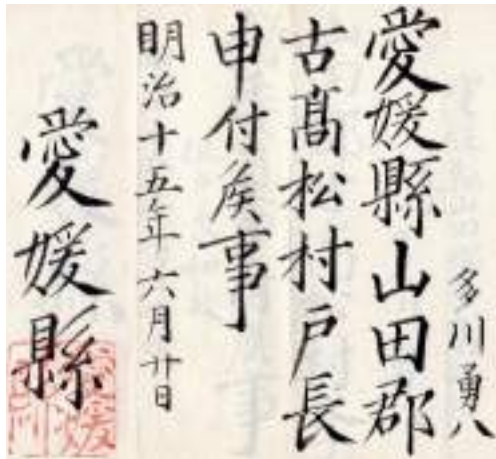 多川勇八
愛媛縣山田郡
古髙松村戸長
申付矦事
明治十五年六月廿日
愛媛縣